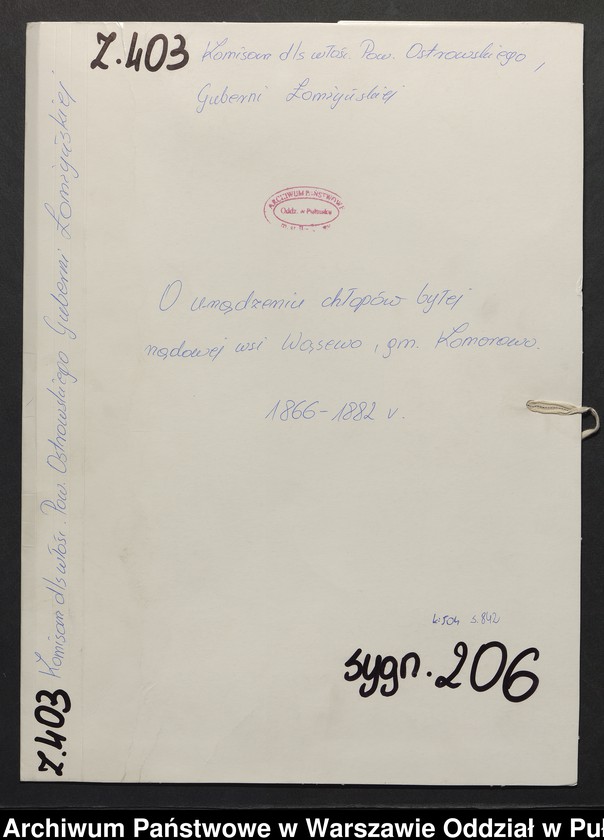 Z.403 Komisarz dls włośc. Pow. Ostrowskiego,
Guberni Łomżyńskiej
ARCHIWUM PAŃSTWOWE
Oddz. w Pułtusku
O urządzeniu chłopów byłej
rządowej wsi Wąsewo, gm. Komorowo.
1866-1882 r.
k:504 s.842
sygn. 206
Z.403 Komisarz dls włośc. Pow. Ostrowskiego Guberni Łomżyńskiej
Archiwum Państwowe w Warszawie Oddział w Puł